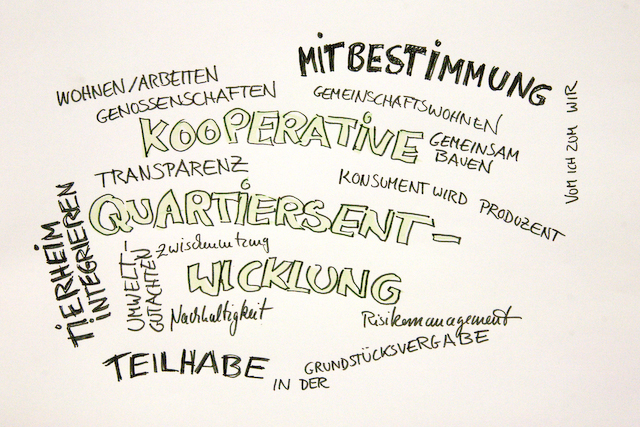 MITBESTIMMUNG
WOHNEN/ARBEITEN
GENOSSENSCHAFTEN
GEMEINSCHAFTSWOHNEN
VOM ICH ZUM WIR
KOOPERATIVE
GEMEINSAM
BAUEN
TRANSPARENZ
KONSUMENT WIRD PRODUZENT
QUARTIERSENT-
TIERHEIM
INTEGRIEREN
UMWELT-
GUTACHTEN
Zwischennutzung
WICKLUNG
Nachhaltigkeit
Risikomanagement
TEILHABE
IN DER
GRUNDSTÜCKSVERGABE